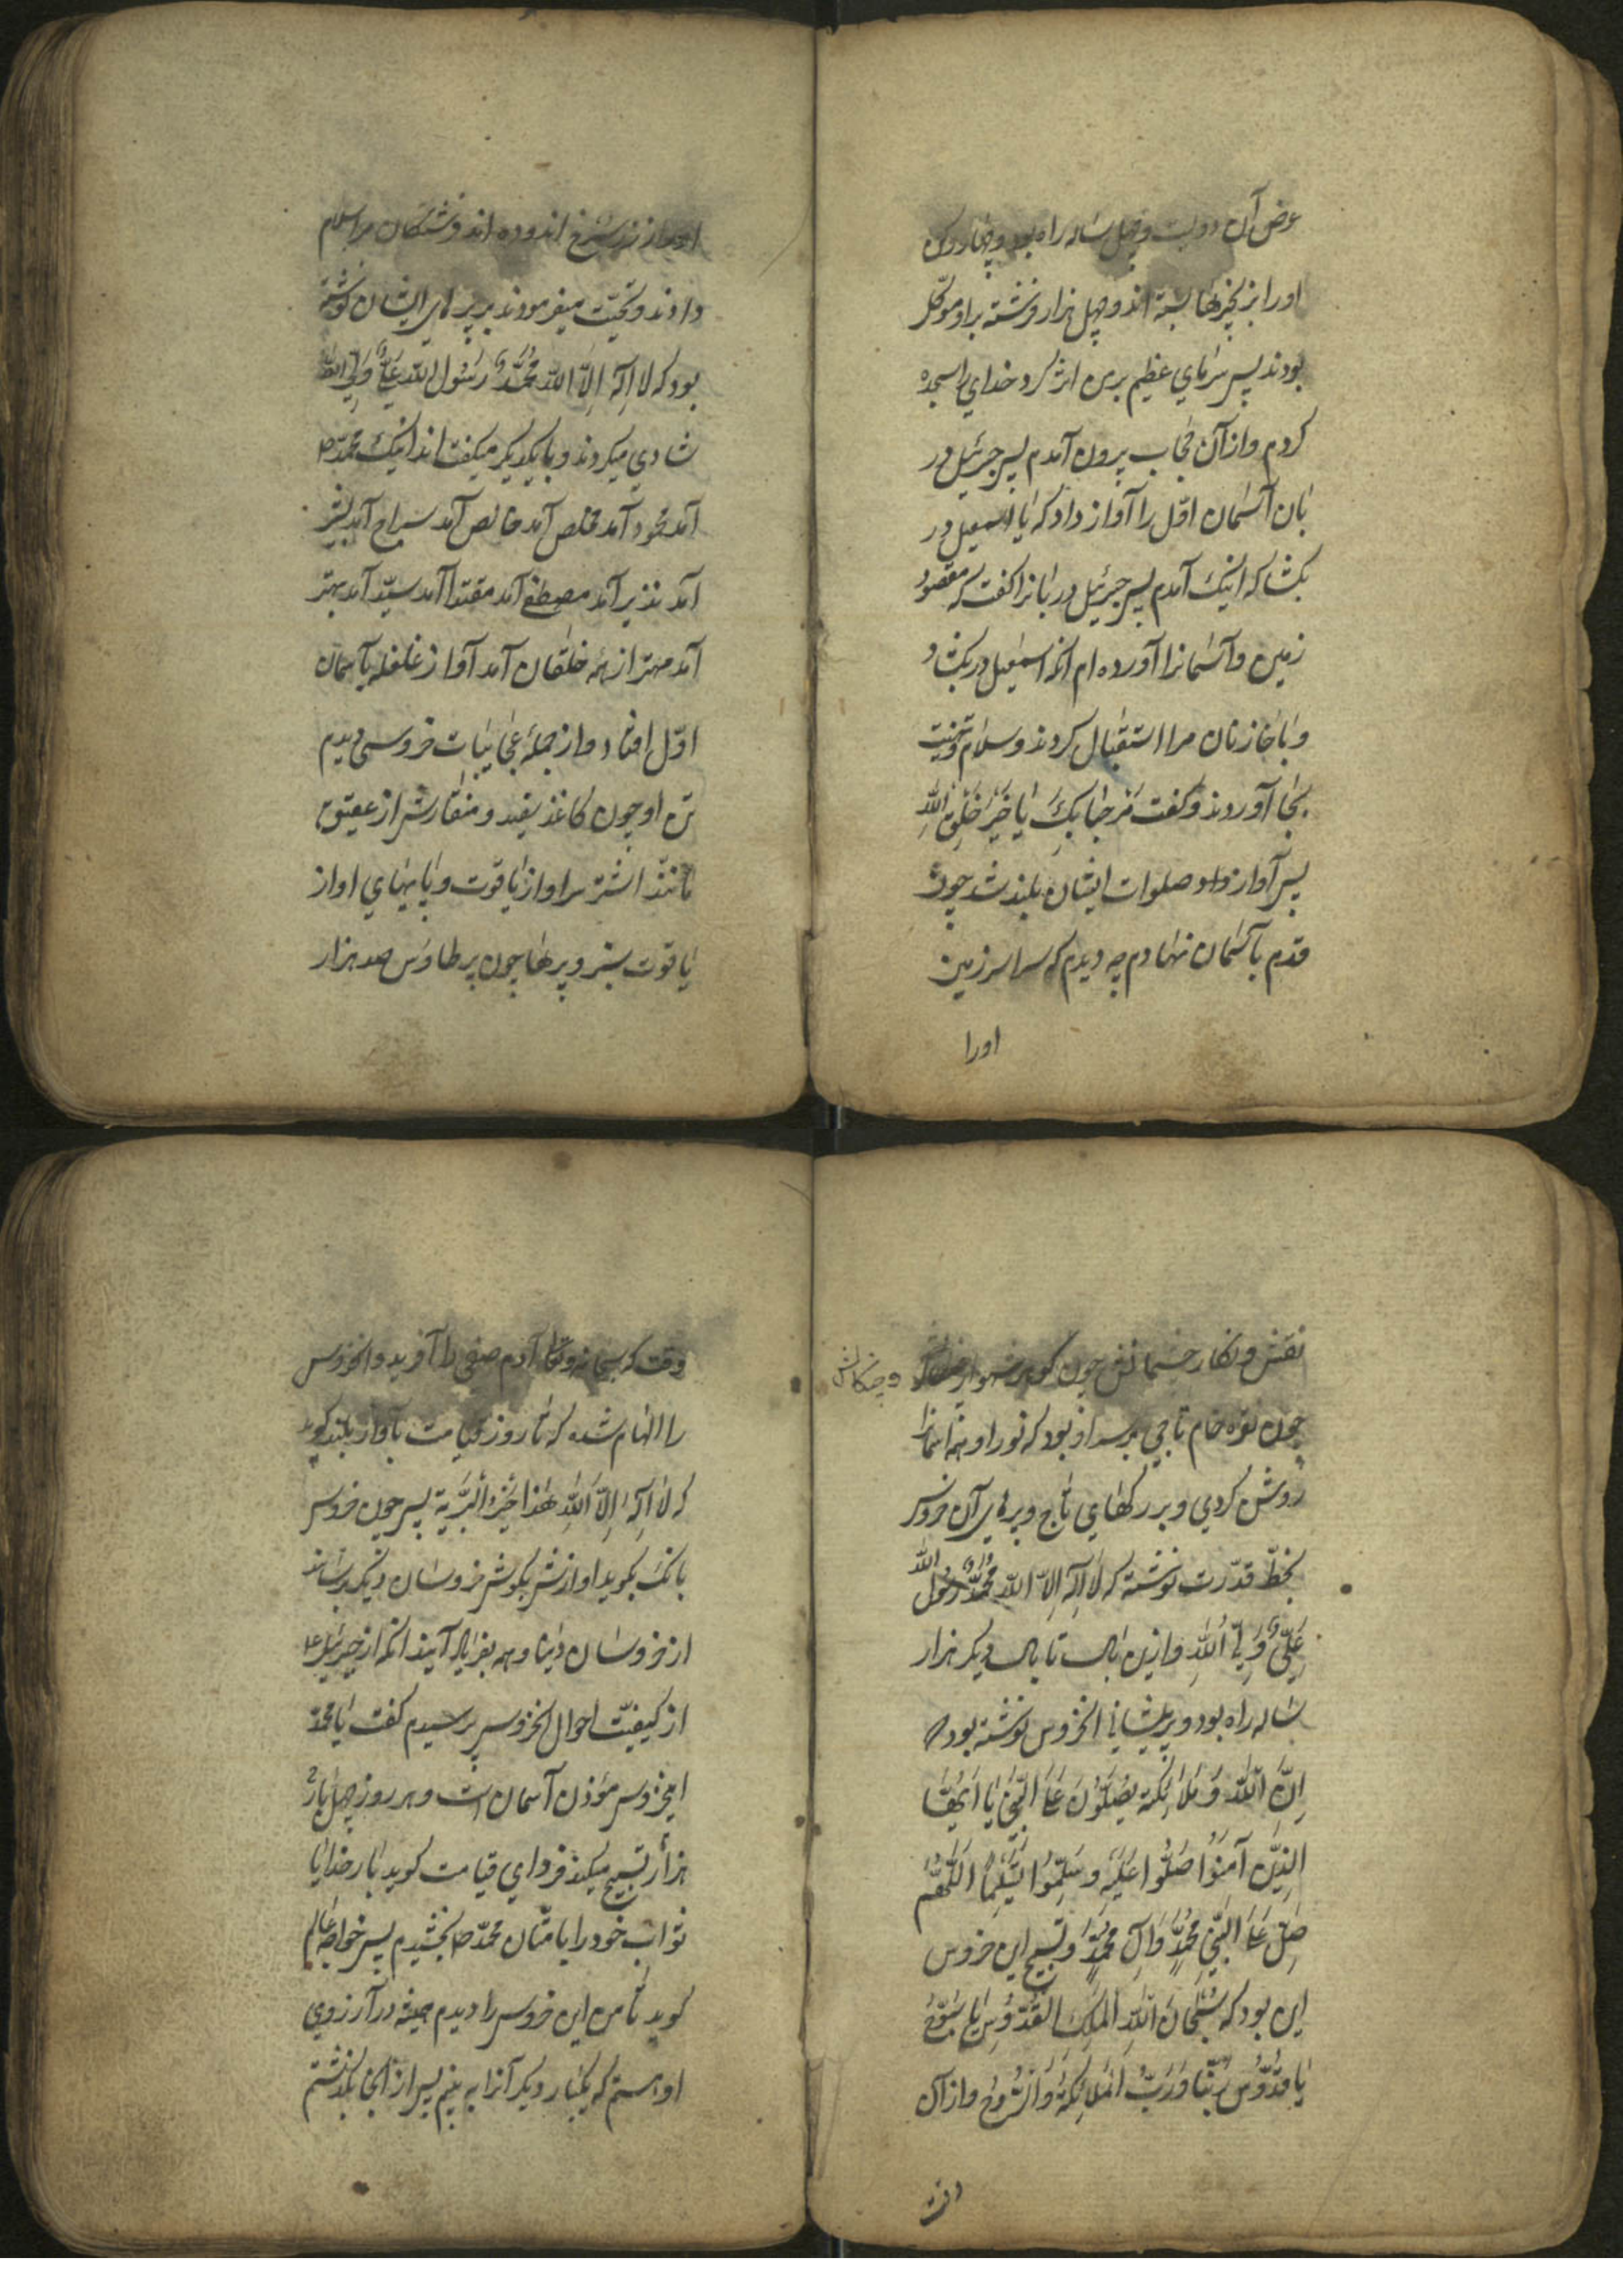 عرض آن دویست و چهل ساله راه بود و چهار رکن
اورا بزنجیرها بسته اند و چهل هزار فرشته براو موکّل
بودند پس سرمای عظیم برمن اثر کرد خدای را سجده
کردم وازآن حجاب بیرون آمدم پس جبرئیل در
بان آسمان اوّل را آواز داد که یا اسمعیل در
بکشا که اینک آمدم پس جبرئیل دربانرا کفت که مقصود
زمین وآسمانرا آورده ام انکه اسمعیل در بکشاد
وبا خازنان مرا استقبال کردند وسلام وتحیت
بجا آوردند وکفت مَرحَبا بِکَ یا خَیرَ خَلقِ اللهِ
پس آواز داد صلوات ایشان بلند شد چون
قدم بآسمان نهادم چه دیدم که سراسر زمین
اورا
اورا از زر سرخ اندوده اند و فرشتکان مرا سلام
دادند وتحیّت میفرمودند بر پرهای ایشان نوشته
بود که لا اِلٰهَ اِلّا اللّه مُحَمَّدٌ رَسُول اللّه عَلیٌّ وَلِیُّ اللّه
شادی میکردند وبا یکدیکر میکفتند اینک محمّد ص
آمد محمود آمد مخلص آمد خالص آمد سراج آمد بشیر
آمد نذیر آمد مصطفی آمد مقتدا آمد سیّد آمد بهتر
آمد مهتر از همه خلقان آمد آواز غلغله بآسمان
اوّل افتاد واز جملهٔ عجائبات خروسی دیدم
تن او چون کاغذ سفید و منقارش از عقیق
مانند اشتر سر او از یاقوت وپایهای او از
یاقوت سبز وپرها چون پر طاوس صد هزار
نقش ونکار چشمانش چون کوهر شهوار و چنکالش
چون نقره خام تاجی برسر او بود که نور او همه آسمانرا
روشن کردی وبر رکهای تاج وپرهای آن خروس
بخطّ قدرت نوشته که لا اِلٰهَ اِلّا اللّه مُحَمَّدٌ رسُول اللّه
عَلِیٌّ وَلِیُّ اللهِ وازین بال تا بال دیکر هزار
ساله راه بود وبر پیشانی انخروس نوشته بود
اِنَّ اللّٰهَ وَمَلائِکَتَهُ یُصَلُّونَ عَلَی النَّبِیِّ یا اَیُّهَا
الَّذِینَ آمَنُوا صَلُّوا عَلَیهِ وَسَلِّمُوا تَسْلِیماً اَللّٰهُمَّ
صَلِّ عَلَی النَّبِیِّ مُحَمَّدٍ وَآلِ مُحَمَّدٍ وتسبیح این خروس
این بود که سُبْحانَ اللّهِ المَلِکِ القُدُّوسِ یا سُبُّوحُ
یا قُدُّوسُ رَبَّنا وَرَبُّ المَلائِکَةِ وَالرُّوحِ وازآن
وقت که سبحانه وتعالی آدم صفی را آفرید وانخروس
را الهام شده که تا روز قیامت بآواز بلند کوید
که لا اِلٰهَ اِلّا اللّهُ هٰذا خَیرُ البَرِیَّة پس چون خروس
بانک بکوید اوازش بکوش خروسان دیکر برساند
از خروسان دنیا وهمه بفریاد آیند انکه از جبرئیل ع
از کیفیّت احوال انخروس پرسیدم کفت یا محمّد
اینخروس مؤذن آسمان است وهر روز چهل بار
هزار تسبیح میکند فردای قیامت کوید بار خدایا
ثواب خود را بامتّان محمّد ص بخشیدم پس خواجه عالم
کوید تا من این خروس را دیدم همیشه در آرزوی
او هستم که یکبار دیکر آنرا به بینم پس از انجا بکذشتم